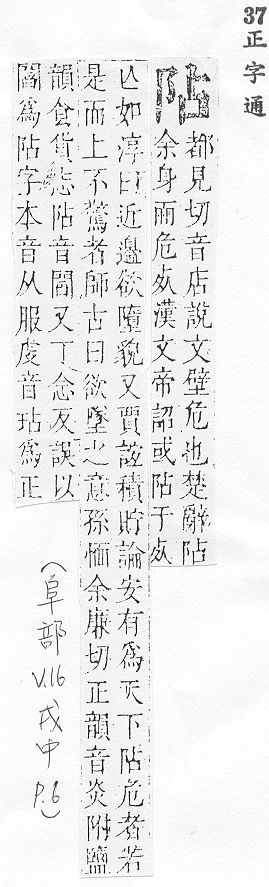 37 正字通
阽
都見切音店說文壁危也楚辭阽
余身而危𣦸漢文帝詔或阽于𣦸
亾如淳曰近邊欲墮貌又賈誼積貯論安有為天下阽危者若
是而上不驚者師古曰欲墜之意孫愐余廉切正韻音炎附鹽
韻食貨志阽音閻又丁念反誤以
閻為阽字本音从服虔音坫為正
(阜部
V.16
戌中
P.6)